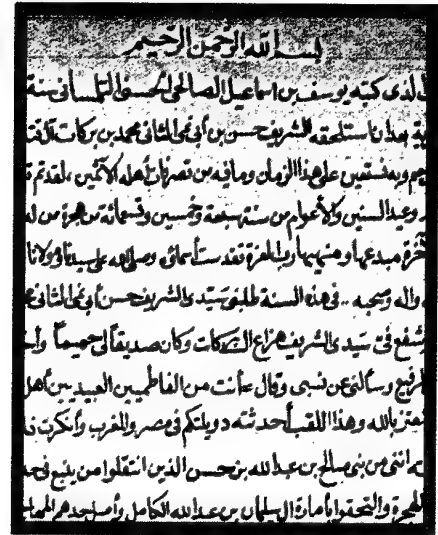 بسم الله الرحمن الرحيم
الذي كتبه يوسف بن اسماعيل الصالحي الحسني التلمساني سنة
بعد ان استلحقه الشريف حسن بن أبي نمي الثاني محمد بن بركات
وبه نستعين على هذا الزمان وما فيه من تصرفات أهله الآثمين
وعيد السنين والأعوام من سنة سبعة وخمسين وتسعمائة من هجرة من
مبدعها ومنهيها وبالعزة تقدست أسمائه وصلى الله على سيدنا ومولانا
واله وصحبه .. في هذه السنة طلبني سيدي الشريف حسن أبي نمي الثاني
شفع في سيدي الشريف هزاع البركات وكان صديقاً لي حميماً
وسألني عن نسبي وقال أنت من الفاطميين العبيديين أهل
بالله وهذا اللقب أحدثته دويلتكم في مصر والمغرب وأنكرت
انني من بني صالح بن عبدالله بن حسن الذين انتقلوا من ينبع في
والتحقوا بأمارة ال سلمان بن عبدالله الكامل وأصل جدهم